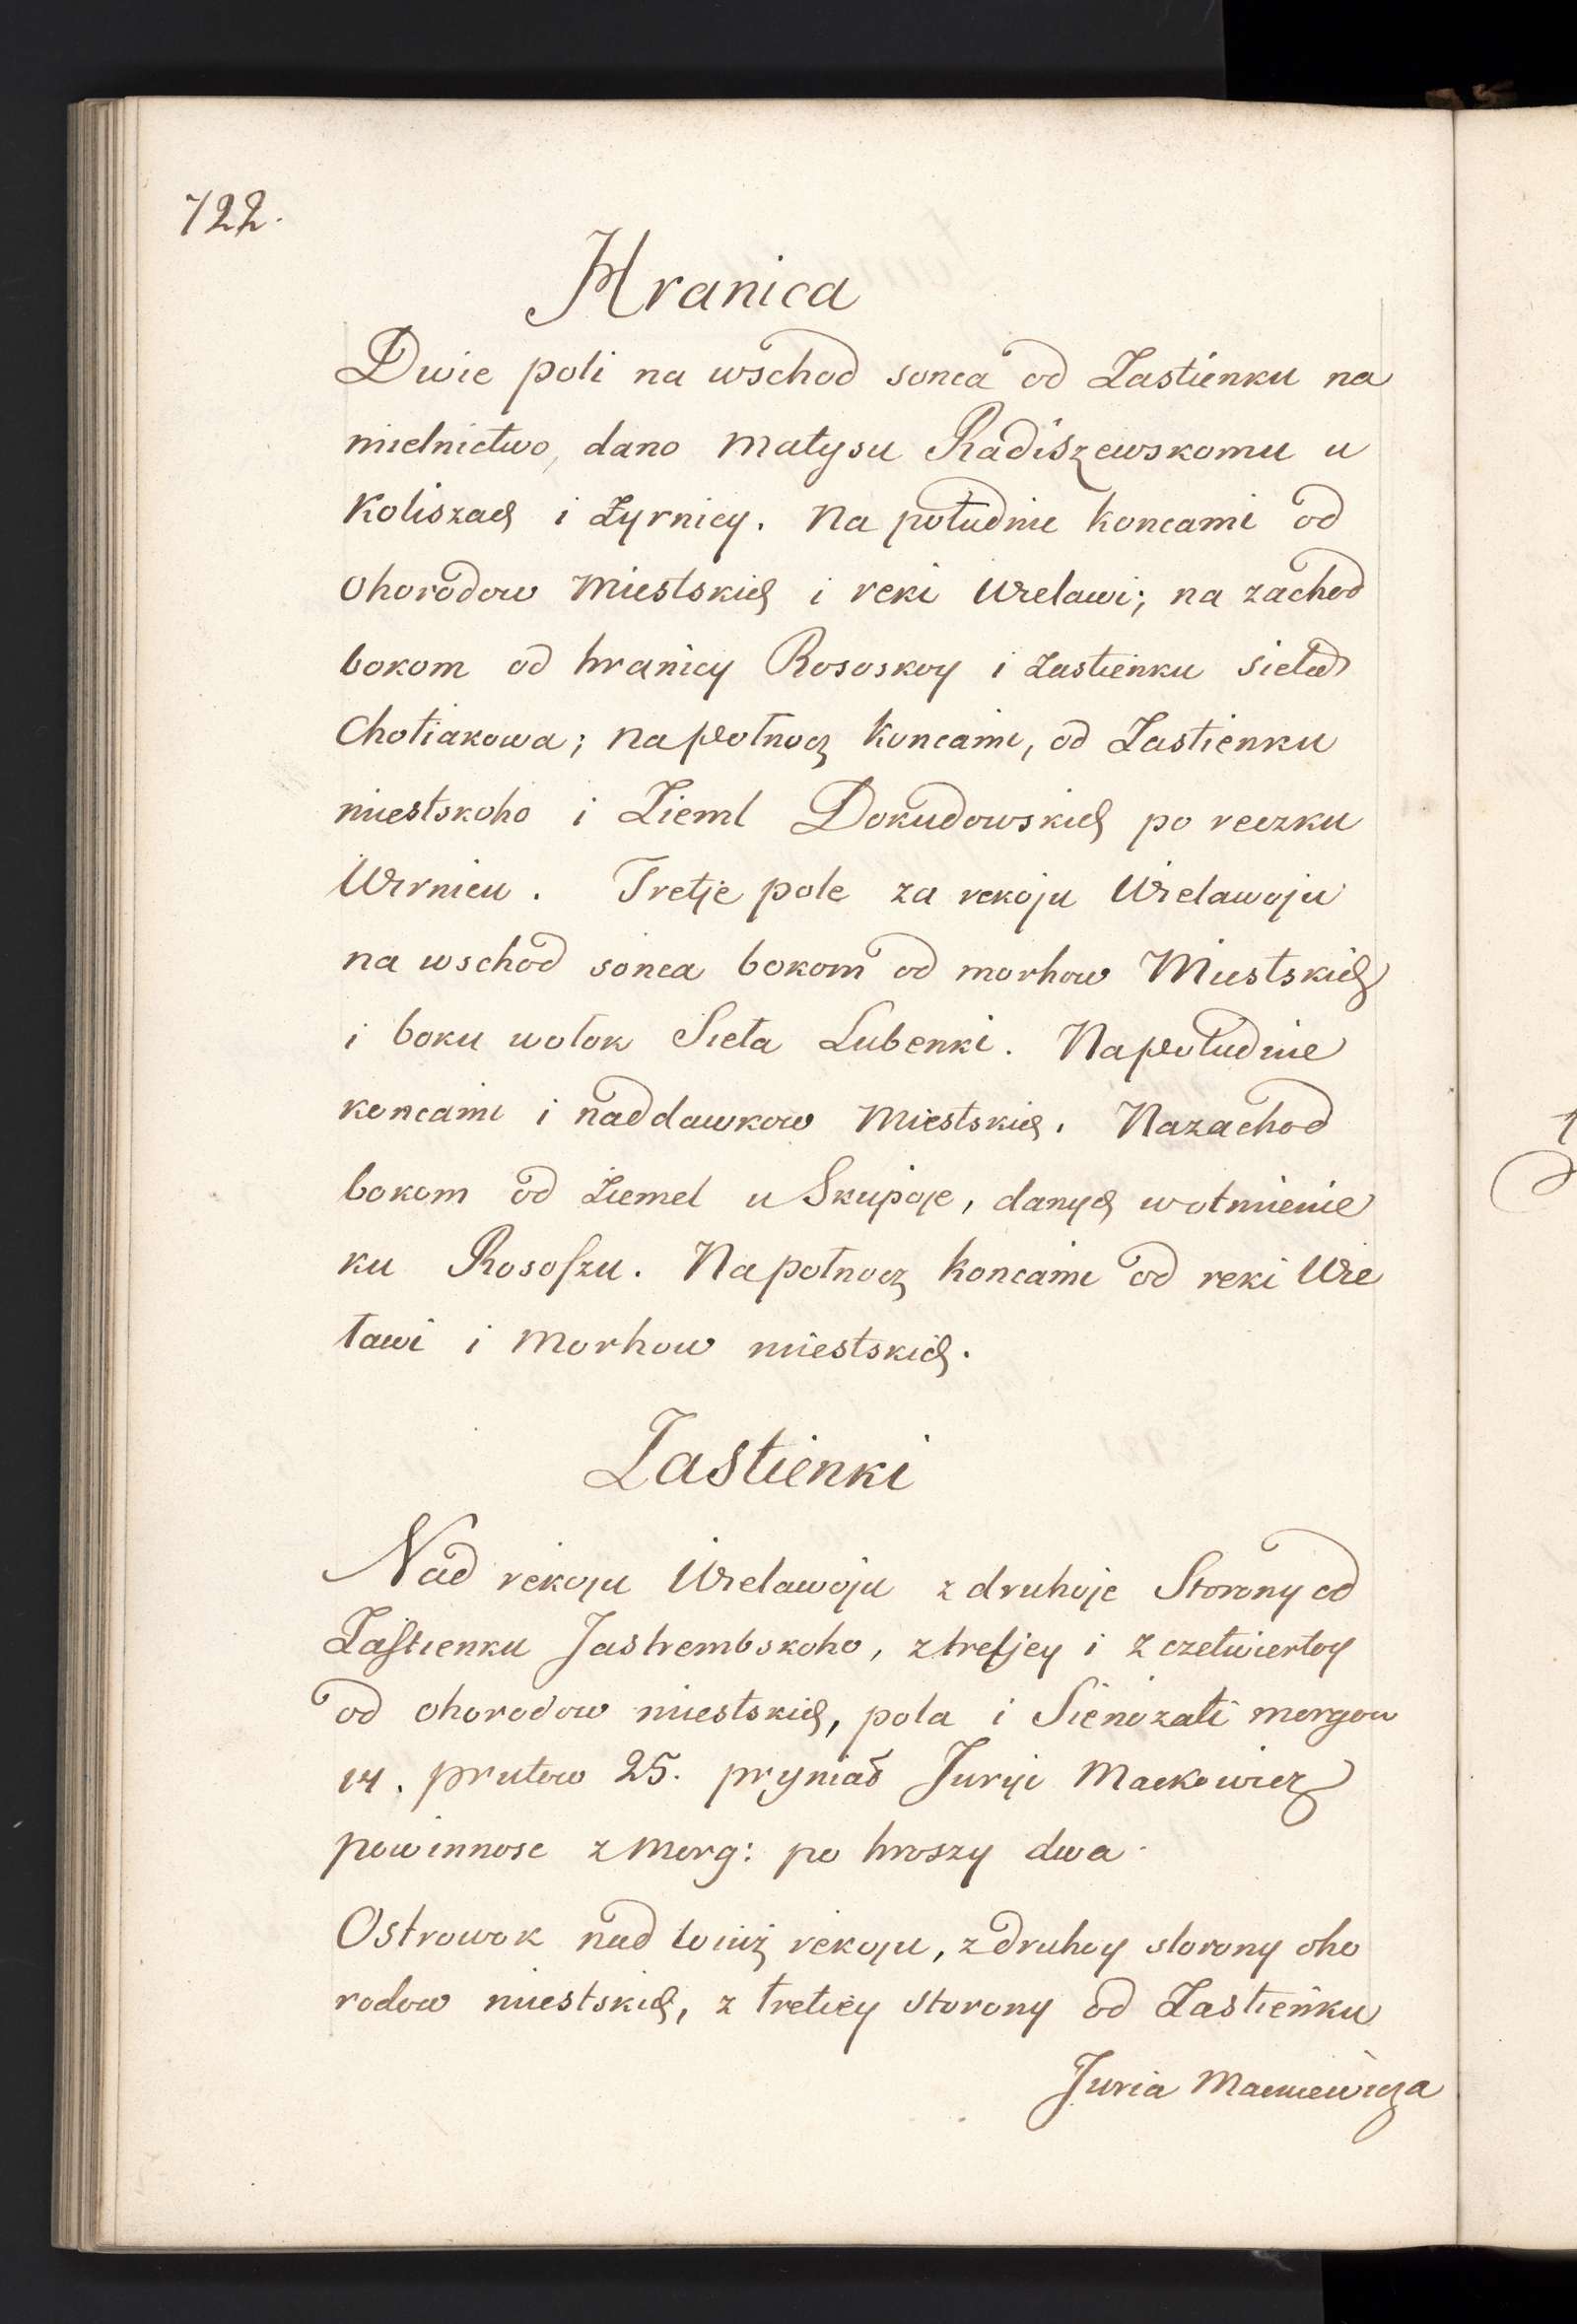 722.
Hranica
Dwie poli na wschod sonca od Zastienku na
mielnictwo, dano Matysu Radiszewskomu u
Koliszach i Zyrnicy. Na południe koncami od
Ohorodow Miestskich i reki Wielawi; na zachod
bokom od hranicy Rososkoy i Zastienku sieła
Chotiakowa; na połnocz koncami, od Zastienku
miestskoho i Zieml Dokudowskich po reczku
Wirnicu. Tretje pole za rekoju Wielawoju
na wschod sonca bokom od morhow Miestskich
i boku wołok Sieła Lubenki. Na południe
koncami i naddawkow Miestskich. Na zachod
bokom od Ziemel u Skupoje, danych wotmienie
ku Rososzu. Na połnocz koncami od reki Wie
ławi i Morhow miestskich.
Zastienki
Nad rekoju Wielawoju z druhoje Storony od
Zastienku Jastrembskoho, z tretjey i z czetwiertoy
od ohorodow miestskich, pola i Sienożati morgow
14. prutow 25. pryniał Juryi Mackowicz
powinnosc z Morg: po hroszy dwa
Ostrowok nad toiuż rekoju, z druhoy storony oho
rodow miestskich, z tretiey storony od Zastienku
Juria Mackiewicza